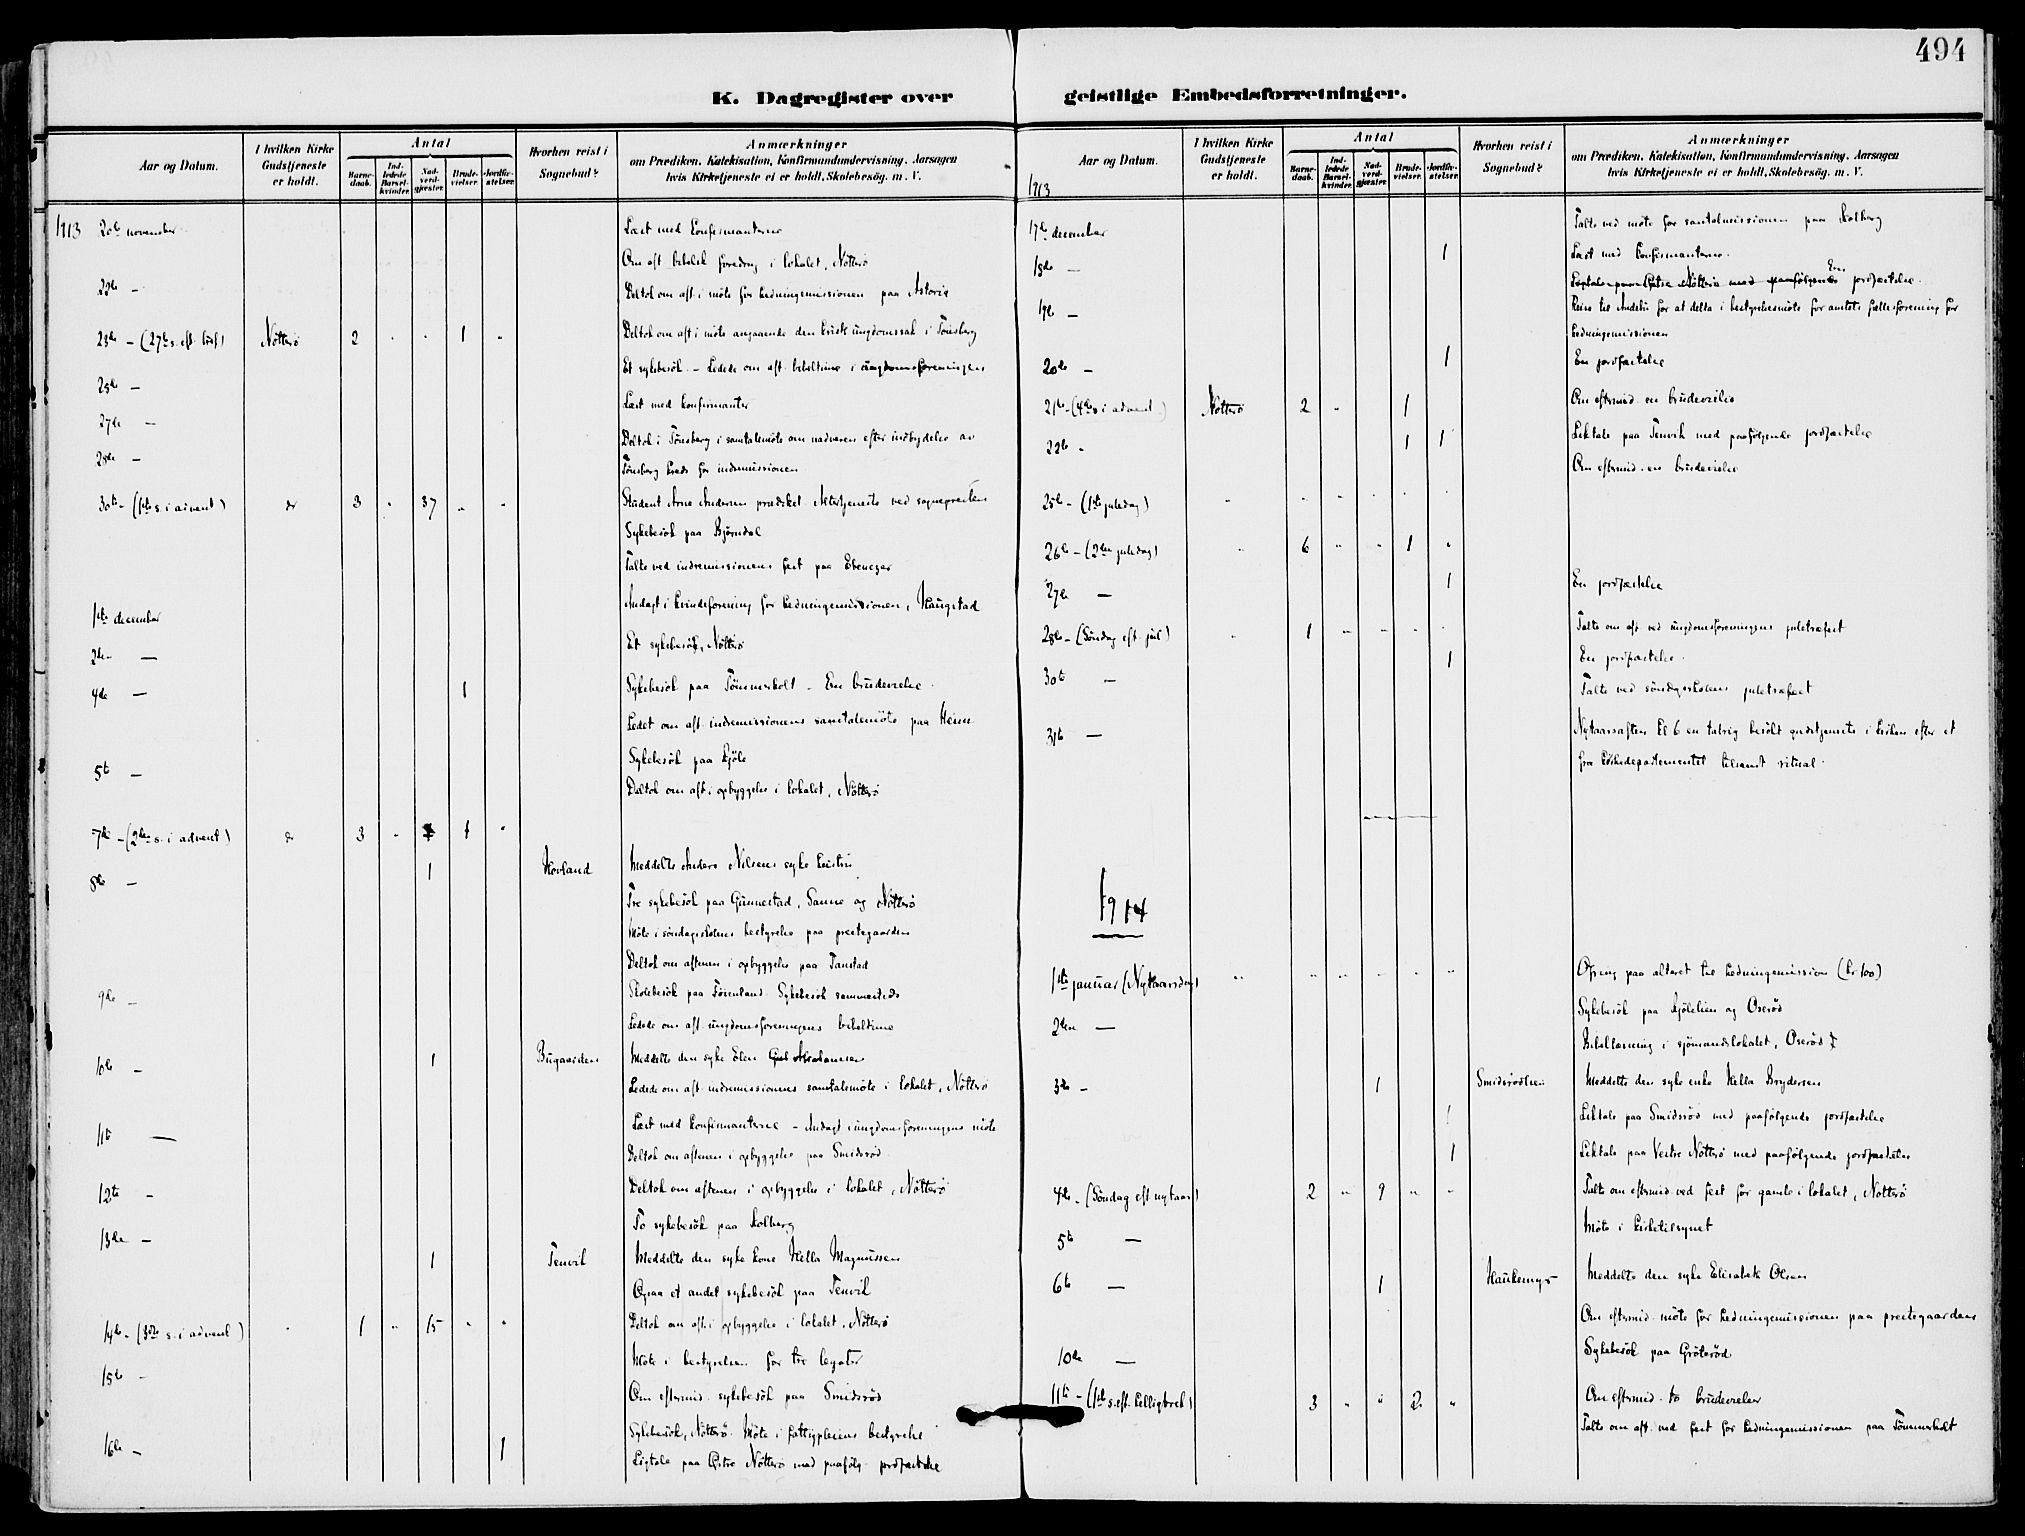 494
K. Dagregister over geistlige Embedsforretninger.
Aar og Datum.
I hvilken Kirke Gudstjeneste er holdt.
Antal
Barnedaab.
Indledede Barselkvinder.
Nadverdgjæster.
Brudevielser.
Jordfæstelser.
Hvorhen reist i Sognebud?
Anmærkninger
om Prædiken, Katekisation, Konfirmandundervisning, Aarsagen
hvis Kirketjeneste ei er holdt, Skolebesög. m. V.
1913 20de november Læst med konfirmanterne
Om aft. bibelsk foredrag i lokalet, Nötterö
22de - Deltok om aft. i möte for hedningemissionen paa Astoria
23de - (27de s. eft. tref.) Nötterö 2 " " 1 " Deltok om aft. i möte angaaende den kristl. ungdomssak i Tönsberg
25de - Et sykebesök. - Ledede om aft. bibeltime i ungdomsforeningen
27de - Læst med konfirmanter
28de - Deltok i Tönsberg i samtalemöte om nadveren efter indbydelse av
Tönsberg kreds for indremissionen
30te - (1ste s. i advent) do 3 " 37 " " Student Arne Andersen prædiket. Altertjeneste ved sognepresten
Sykebesök paa Bjørndal
Talte ved indremissionens fest paa Ebenezer
1ste december Andagt i kvindeforening for hedningemissionen, Haugstad
2den - Et sykebesök, Nötterö
4de - 1 Sykebesök paa Tömmerholt - En brudevielse.
Ledet om aft. indremissionens samtalemöte paa Heim
5te - Sykebesök paa Kjöle
Deltok om aft. i opbyggelse i lokalet, Nötterö
7de - (2den s. i advent) do 3 " 1 "
8de - 1 Hovland Meddelte Anders Nilsens syke hustru
Tre sykebesök paa Gunnestad, Sanne og Nötterö
Möte i söndagsskolens bestyrelse paa prestegaarden
Deltok om aftenen i opbyggelse paa Tanstad
9de - Skolebesök paa Föienland. Sykebesök sammesteds
Ledede om aft. ungdomsforeningens bibeltime
10de - 1 Bugaarden Meddelte den syke Elen Abrahamsen
Ledede om aft. indremissionens samtalemöte i lokalet, Nötterö
11te - Læst med konfirmanterne - Andagt i ungdomsforeningens möte
Deltok om aftenen i opbyggelse paa Smidsröd.
12te - Deltok om aftenen i opbyggelse i lokalet, Nötterö
13de - To sykebesök paa Kolberg
1 Tenvik Meddelte den syke kone Hella Magnussen
Ogsaa et andet sykebesök paa Tenvik
14de - (3die s. i advent) " 1 " 15 " " Deltok om aft. i opbyggelse i lokalet, Nötterö
15de - Möte i bestyrelsen for tre legater
Om eftermid. sykebesök paa Smidsröd
16de - Sykebesök, Nötterö. Möte i fattigpleiens bestyrelse
1 Ligtale paa Östre Nötterö med paafölg. jordfæstelse
1913
17de december Talte ved möte for santalmissionen paa Kolberg
18de - 1 Læst med konfirmanterne.
En jordfæstelse.
19de - Reise til Andebu for at delta i bestyrelsesmöte for amtets fællesforening for
hedningemissionen
20de - 1 En jordfæstelse
21de - (4de s. i advent) Nötterö 2 " 1 Om eftermid. en brudevielse
22de - 1 1 Liktale paa Tenvik med paafölgende jordfæstelse
Om eftermid. en brudevielse
25de - (1ste juledag) " " " " " "
26de - (2den juledag) " 6 " " 1 "
27de - 1 En jordfæstelse
28de - (Söndag eft. jul) " 1 " " " " Talte om aft. ved ungdomsforeningens juletræfest
30te - 1 En jordfæstelse.
Talte ved söndagsskolens juletræfest
31te - Nytaarsaften kl 6 en talrig besökt gudstjeneste i kirken efter et
fra Kirkedepartementet tilsendt ritual.
1914
1ste januar (Nytaarsdag) " " " " " " Ofring paa alteret til hedningemission (kr. 100)
2den - Sykebesök paa Kjölelien og Oseröd
Bibellæsning i sjömandslokalet, Oseröd
3die - 1 Smidsrödlien Meddelte den syke enke Hella Brydersen
1 Liktale paa Smidsröd med paafölgende jordfæstelse
1 Liktale paa Vestre Nötterö med paafölgende jordfæstelse
4de - (Söndag eft. nytaar) 2 " 9 " " Talte om eftermid. ved fest for gamle i lokalet, Nötterö
5te - Möte i kirketilsynet
6te - 1 Haukemyr Meddelte den syke Elisabeth Olsen
Om eftermid. möte for hedningemissionen paa prestegaarden
10de - Sykebesök paa Gröteröd
11te - (1ste s. eft. helligtrek.) 3 " " 2 " Om eftermid. to brudevielser
Talte om aft. ved fest for hedningemissionen paa Tömmerholt